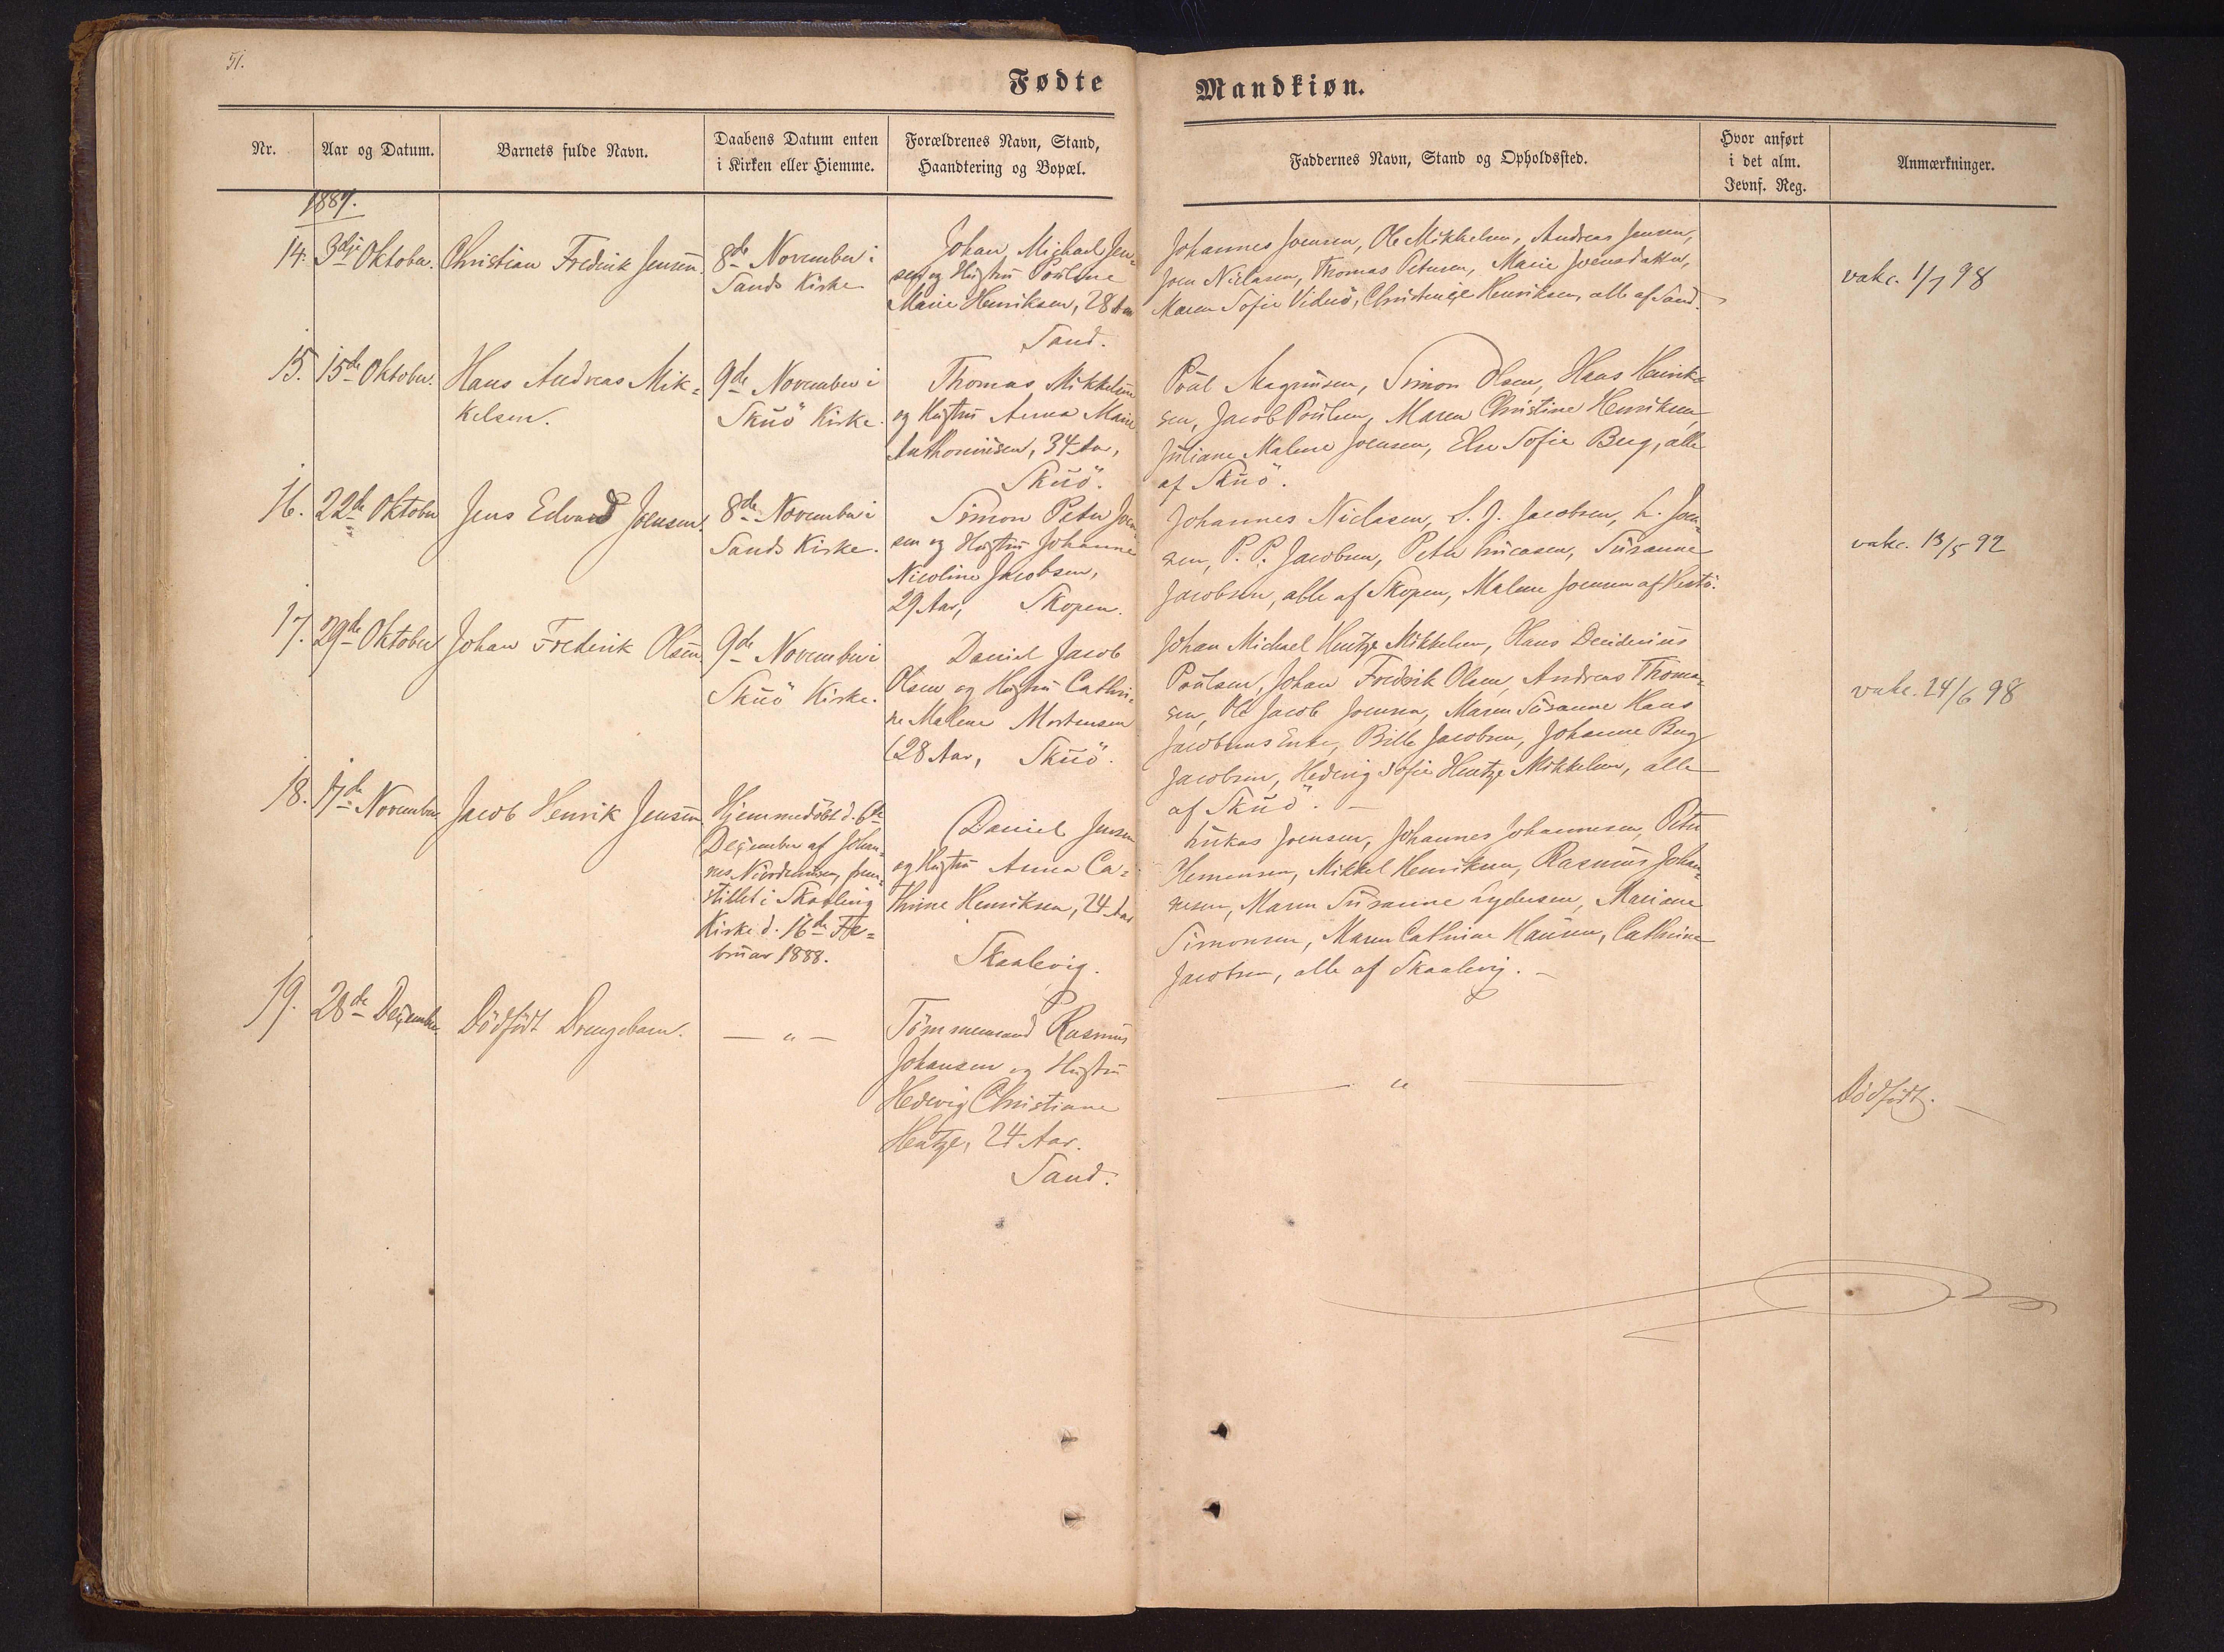 51.
Fødte
Mandkiøn.
Nr.
Aar og Datum.
Barnets fulde Navn.
Daabens Datum enten
i Kirken eller Hiemme.
Forældrenes Navn, Stand,
Haandtering og Bopæl.
Faddernes Navn, Stand og Opholdssted.
Hvor anført
i det alm.
Jevnf. Reg.
Anmærkninger.
1887.
14.
3dje Oktober.
Christian Frederik Jensen.
8de November i
Sands Kirke.
Johan Michael Jen-
sen og Hustru Pouline
Marie Henriksen, 28 Aar
Sand.
Johannes Joensen, Ole Mikkelsen, Andreas Jensen,
Joen Niclasen, Thomas Petersen, Marie Joensdatter,
Maren Sofie Viderö, Christence Henriksen, alle af Sand.
vakc. 1/7 98
15.
15de Oktober.
Hans Andreas Mik-
kelsen.
9de November i
Skuö Kirke.
Thomas Mikkelsen
og Hustru Anna Marie
Anthoniusen, 34 Aar,
Skuö.
Poul Magnusen, Simon Olsen, Hans Henrik-
sen, Jacob Poulsen, Maren Christine Henriksen,
Juliane Malene Joensen, Else Sofie Berg, alle
af Skuö.
16.
22de Oktober
Jens Edvard Joensen.
8de November i
Sands Kirke.
Simon Peter Joen-
sen og Hustru Johanne
Nicoline Jacobsen,
29 Aar, Skopen.
Johannes Niclasen, S. J. Jacobsen, L. Joen-
sen, P. P. Jacobsen, Peter Lucasen, Susanne
Jacobsen, alle af Skopen, Malene Joensen af Hestö.
vakc. 13/5 92
17.
29de Oktober
Johan Frederik Olsen.
9de November i
Skuö Kirke.
Daniel Jacob
Olsen og Hustru Cathri-
ne Malene Mortensen
28 Aar, Skuö.
Johan Michael Hentze Mikkelsen, Hans Desiderius
Poulsen, Johan Fredrik Olsen, Andreas Thoma-
sen, Ole Jacob Joensen, Maren Susanne Hans
Jacobsens Enke, Bille Jacobsen, Johanne Berg
Jacobsen, Hedevig Sofie Hentze Mikkelsen, alle
af Skuö. –
vakc. 24/6 98
18.
17de November
Jacob Henrik Jensen.
Hjemmedöbt d. 6te
December af Johan-
nes, frem-
stillet i Skaalevig
Kirke d. 16de Fe-
bruar 1888.
Daniel Jensen
og Hustru Anna Ca-
thrine Henriksen, 24 Aar
Skaalevig.
Lukas Joensen, Johannes Johannesen, Peter
Clemensen, Mikkel Henriksen, Rasmus Johan-
nesen, Maren Susanne Lydersen, Mariane
Simonsen, Maren Cathrine Hansen, Cathrine
Jacobsen, alle af Skaalevig. –
19.
28de December.
Dödfödt Drengebarn.
— " —
Tömmermand Rasmus
Johansen og Hustru
Hedevig Christiane
Hentze, 24 Aar.
Sand.
— " —
Dödfödt. –